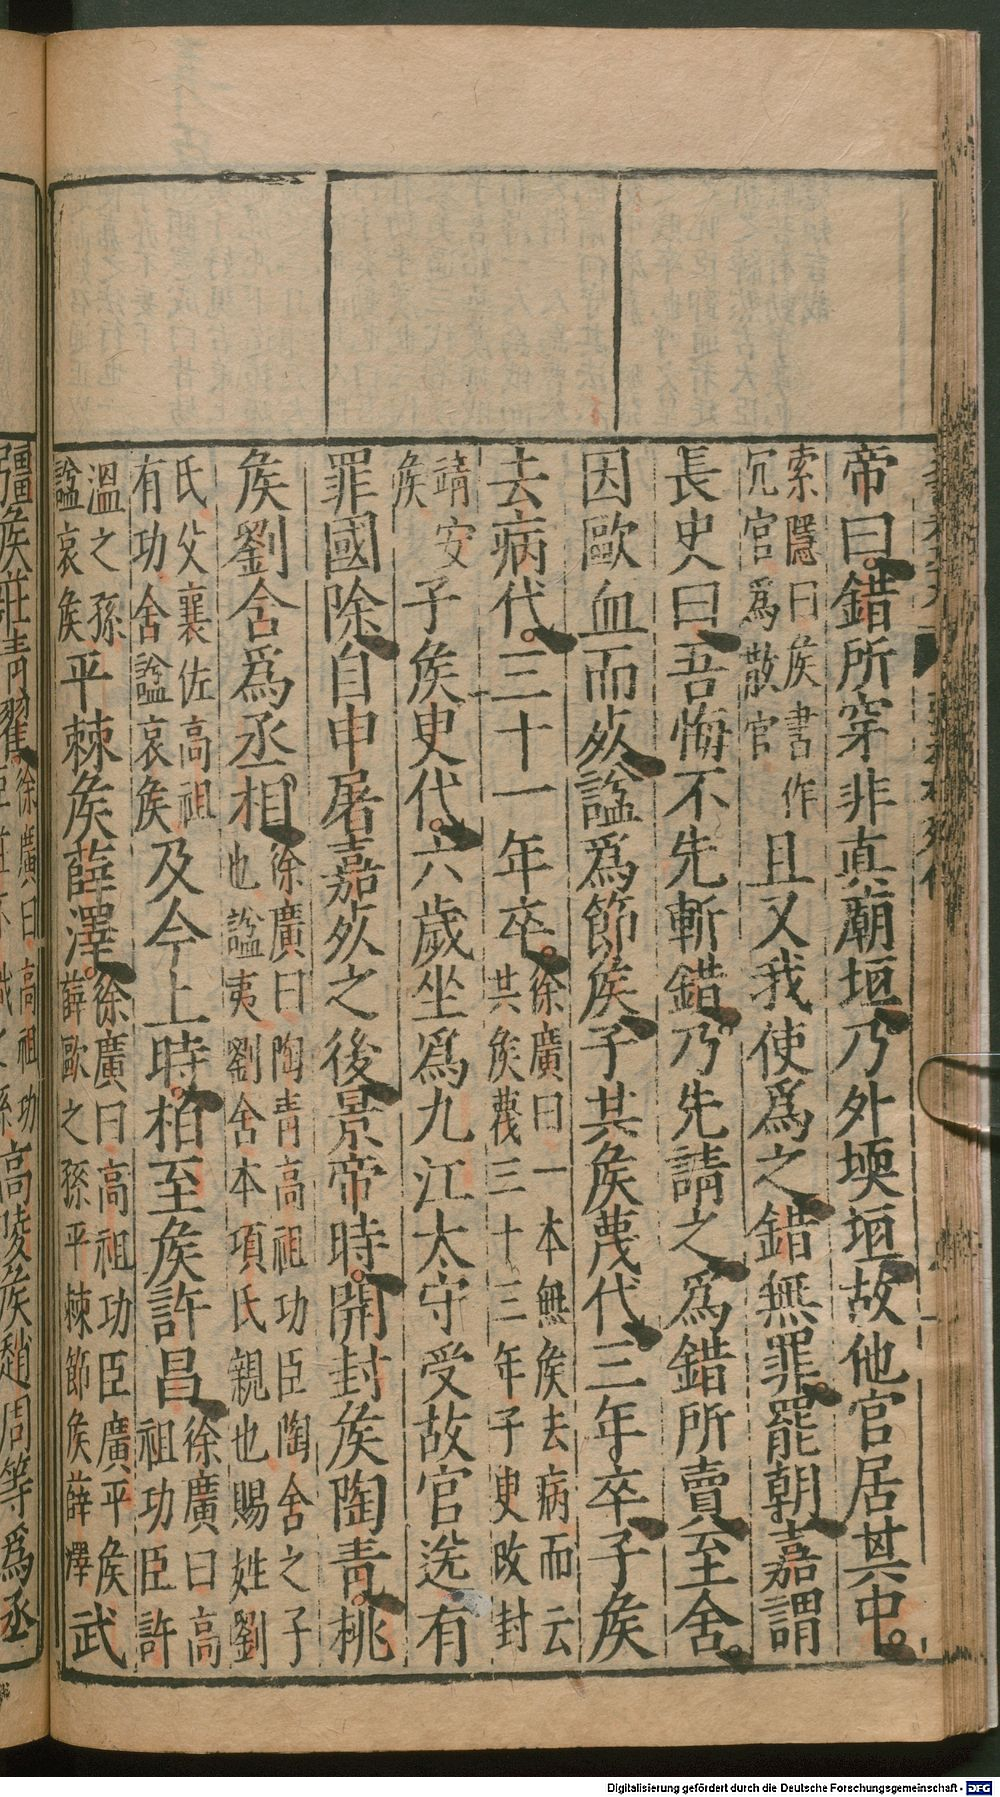 帝曰錯所穿非真廟垣乃外堧垣故他官居其中
索隱曰矦書作冗官爲散官且又我使爲之錯無罪罷朝嘉謂
長史曰吾悔不先斬錯乃先請之爲錯所賣至舍
因歐血而死謚爲節矦子共矦蔑代三年卒子矦
去病代三十一年卒徐廣曰一本無矦去病而云共矦蔑三十三年子㬰改封
靖安矦子矦㬰代六歲坐爲九江太守受故官送有
罪國除自申屠嘉死之後景帝時開封矦陶青桃
矦劉舍爲丞相徐廣曰陶青高祖功臣陶舍之子也謚夷劉舍本項氏親也賜姓劉
氏父襄佐高祖有功舍謚哀矦及今上時柏至矦許昌徐廣曰高祖功臣許
溫之孫謚哀矦平棘矦薛澤徐廣曰高祖功臣廣平矦薛歐之孫平棘節矦薛澤武
彊矦莊青翟徐廣曰高祖功
高陵矦趙周等爲丞
Digitalisierung gefördert durch die Deutsche Forschungsgemeinschaft - DFG